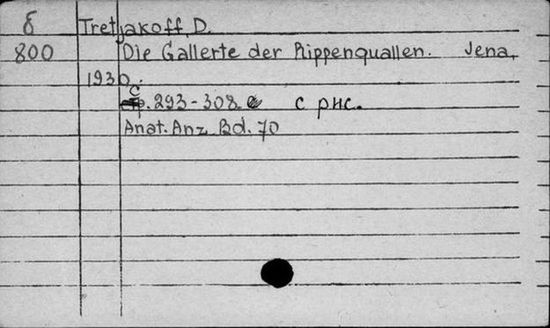 б Tretjakoff, D.
800 Die Gallerte der Rippenquallen. Jena,
1930.
с. 293-308. с рис.
Anat. Anz. Bd. 70